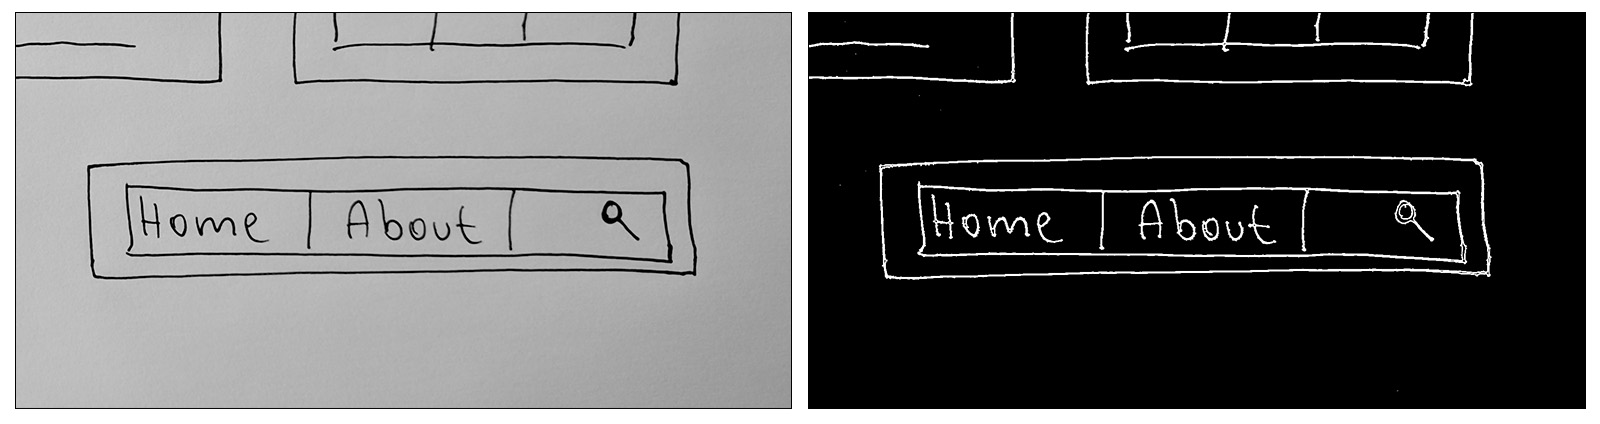 Home About
Home About